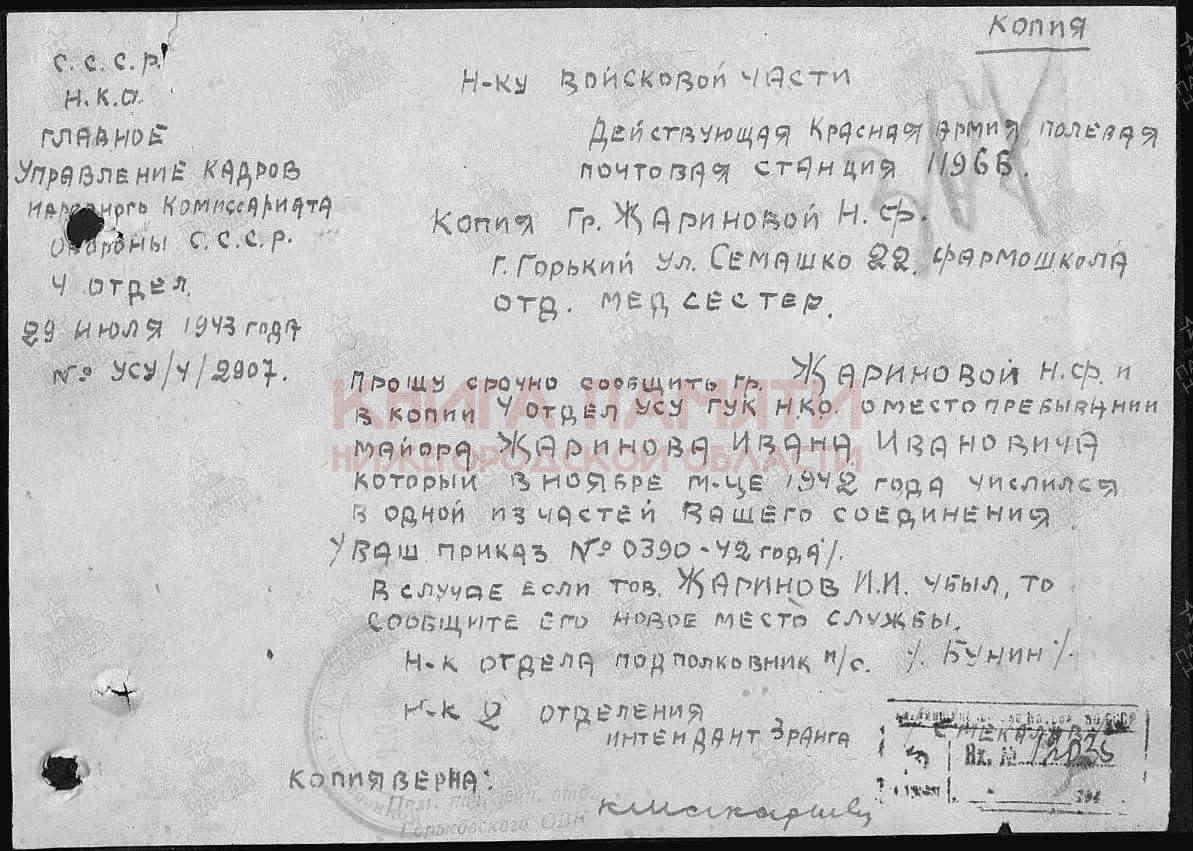 КОПИЯ
С.С.С.Р.
Н.К.О.
ГЛАВНОЕ
УПРАВЛЕНИЕ КАДРОВ
НАРОДНОГО КОМИССАРИАТА
ОБОРОНЫ С.С.С.Р.
4 ОТДЕЛ.
29 ИЮЛЯ 1943 ГОДА
№ УСУ/4/2907.
Н-КУ ВОЙСКОВОЙ ЧАСТИ
ДЕЙСТВУЮЩАЯ КРАСНАЯ АРМИЯ ПОЛЕВАЯ
ПОЧТОВАЯ СТАНЦИЯ 11966.
КОПИЯ ГР. ЖАРИНОВОЙ Н.Ф.
Г. ГОРЬКИЙ УЛ. СЕМАШКО 22. ФАРМОШКОЛА
ОТД. МЕДСЕСТЕР.
ПРОШУ СРОЧНО СООБЩИТЬ ГР. ЖАРИНОВОЙ Н.Ф. И
В КОПИИ 4 ОТДЕЛ УСУ ГУК Н.К.О. О МЕСТОПРЕБЫВАНИИ
МАЙОРА ЖАРИНОВА ИВАНА ИВАНОВИЧА
КОТОРЫЙ В НОЯБРЕ М-ЦЕ 1942 ГОДА ЧИСЛИЛСЯ
В ОДНОЙ ИЗ ЧАСТЕЙ ВАШЕГО СОЕДИНЕНИЯ
/ ВАШ ПРИКАЗ № 0390-42 ГОДА /.
В СЛУЧАЕ ЕСЛИ ТОВ. ЖАРИНОВ И.И. УБЫЛ, ТО
СООБЩИТЕ ЕГО НОВОЕ МЕСТО СЛУЖБЫ.
Н-К ОТДЕЛА ПОДПОЛКОВНИК И/С. /. БУНИН /.
Н-К 2 ОТДЕЛЕНИЯ
ИНТЕНДАНТ 3 РАНГА / СМЕКАЛОВ /
Вх. №
194
КОПИЯ ВЕРНА:
Горьковского ОВК
КНИГА ПАМЯТИ
НИЖЕГОРОДСКОЙ ОБЛАСТИ